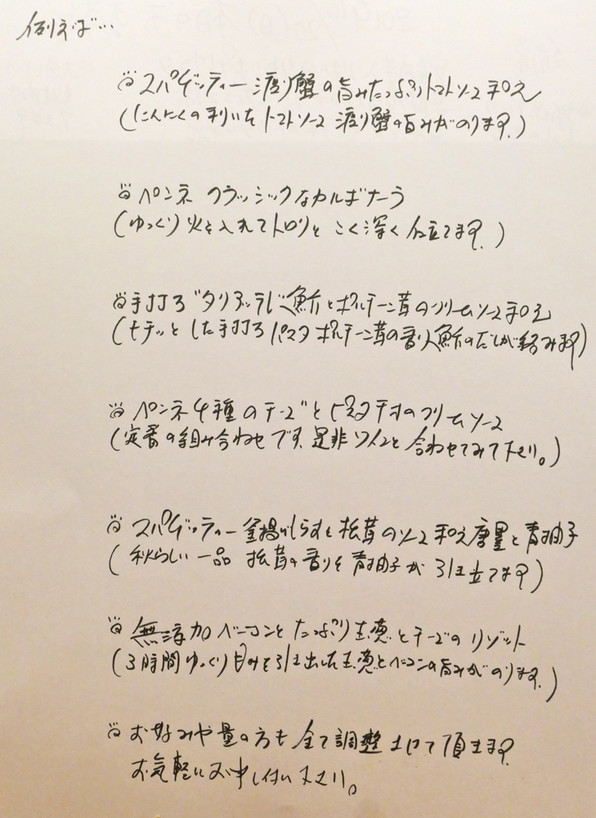 例えば…
スパゲッティー 渡り蟹の旨みたっぷりトマトソース和え
(にんにくの利いたトマトソース 渡り蟹の旨みがのります。)
ペンネ クラッシックなカルボナーラ
(ゆっくり火を入れてトロリと こく深く 仕立てます。)
手打ち タリアッテレ 魚介とポルチーニ茸のクリームソース和え
(モチッとした手打ちパスタ ポルチーニ茸の香りと魚介のだしが絡みます)
ペンネ 4種のチーズとピスタチオのクリームソース
(定番の組み合わせです。是非ワインと合わせてみて下さい。)
スパゲッティー 釜揚げしらすと松茸のソース和え 唐墨と青柚子
(秋らしい一品 松茸の香りを青柚子が引き立てます)
無添加ベーコンとたっぷり玉葱とチーズのリゾット
(3時間ゆっくり甘みを引き出した玉葱とベーコンの旨みがのります。)
お好みや量の方も全て調整させて頂きます。
お気軽にお申し付け下さい。